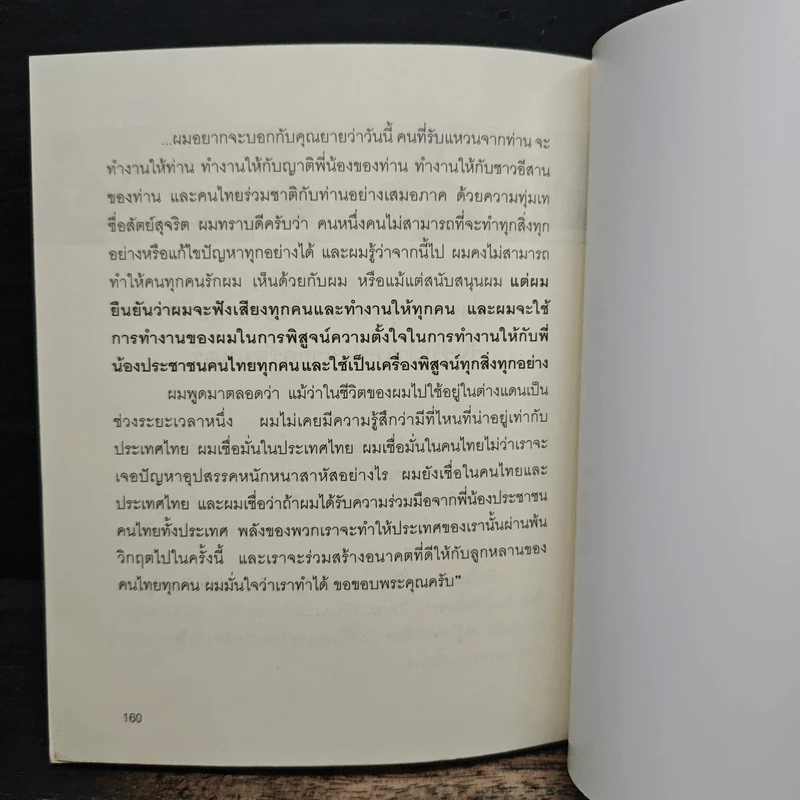 ...ผมอยากจะบอกกับคุณยายว่าวันนี้ คนที่รับแหวนจากท่าน จะ
ทำงานให้ท่าน ทำงานให้กับญาติพี่น้องของท่าน ทำงานให้กับชาวอีสาน
ของท่าน และคนไทยร่วมชาติกับท่านอย่างเสมอภาค ด้วยความทุ่มเท
ซื่อสัตย์สุจริต ผมทราบดีครับว่า คนหนึ่งคนไม่สามารถที่จะทำทุกสิ่งทุก
อย่างหรือแก้ไขปัญหาทุกอย่างได้ และผมรู้ว่าจากนี้ไป ผมคงไม่สามารถ
ทำให้คนทุกคนรักผม เห็นด้วยกับผม หรือแม้แต่สนับสนุนผม แต่ผม
ยืนยันว่าผมจะฟังเสียงทุกคนและทำงานให้ทุกคน และผมจะใช้
การทำงานของผมในการพิสูจน์ความตั้งใจในการทำงานให้กับพี่
น้องประชาชนคนไทยทุกคน และใช้เป็นเครื่องพิสูจน์ทุกสิ่งทุกอย่าง
ผมพูดมาตลอดว่า แม้ว่าในชีวิตของผมไปใช้อยู่ในต่างแดนเป็น
ช่วงระยะเวลาหนึ่ง ผมไม่เคยมีความรู้สึกว่ามีที่ไหนที่น่าอยู่เท่ากับ
ประเทศไทย ผมเชื่อมั่นในประเทศไทย ผมเชื่อมั่นในคนไทยไม่ว่าเราจะ
เจอปัญหาอุปสรรคหนักหนาสาหัสอย่างไร ผมยังเชื่อในคนไทยและ
ประเทศไทย และผมเชื่อว่าถ้าผมได้รับความร่วมมือจากพี่น้องประชาชน
คนไทยทั้งประเทศ พลังของพวกเราจะทำให้ประเทศของเรานั้นผ่านพ้น
วิกฤตไปในครั้งนี้ และเราจะร่วมสร้างอนาคตที่ดีให้กับลูกหลานของ
คนไทยทุกคน ผมมั่นใจว่าเราทำได้ ขอขอบพระคุณครับ”
160